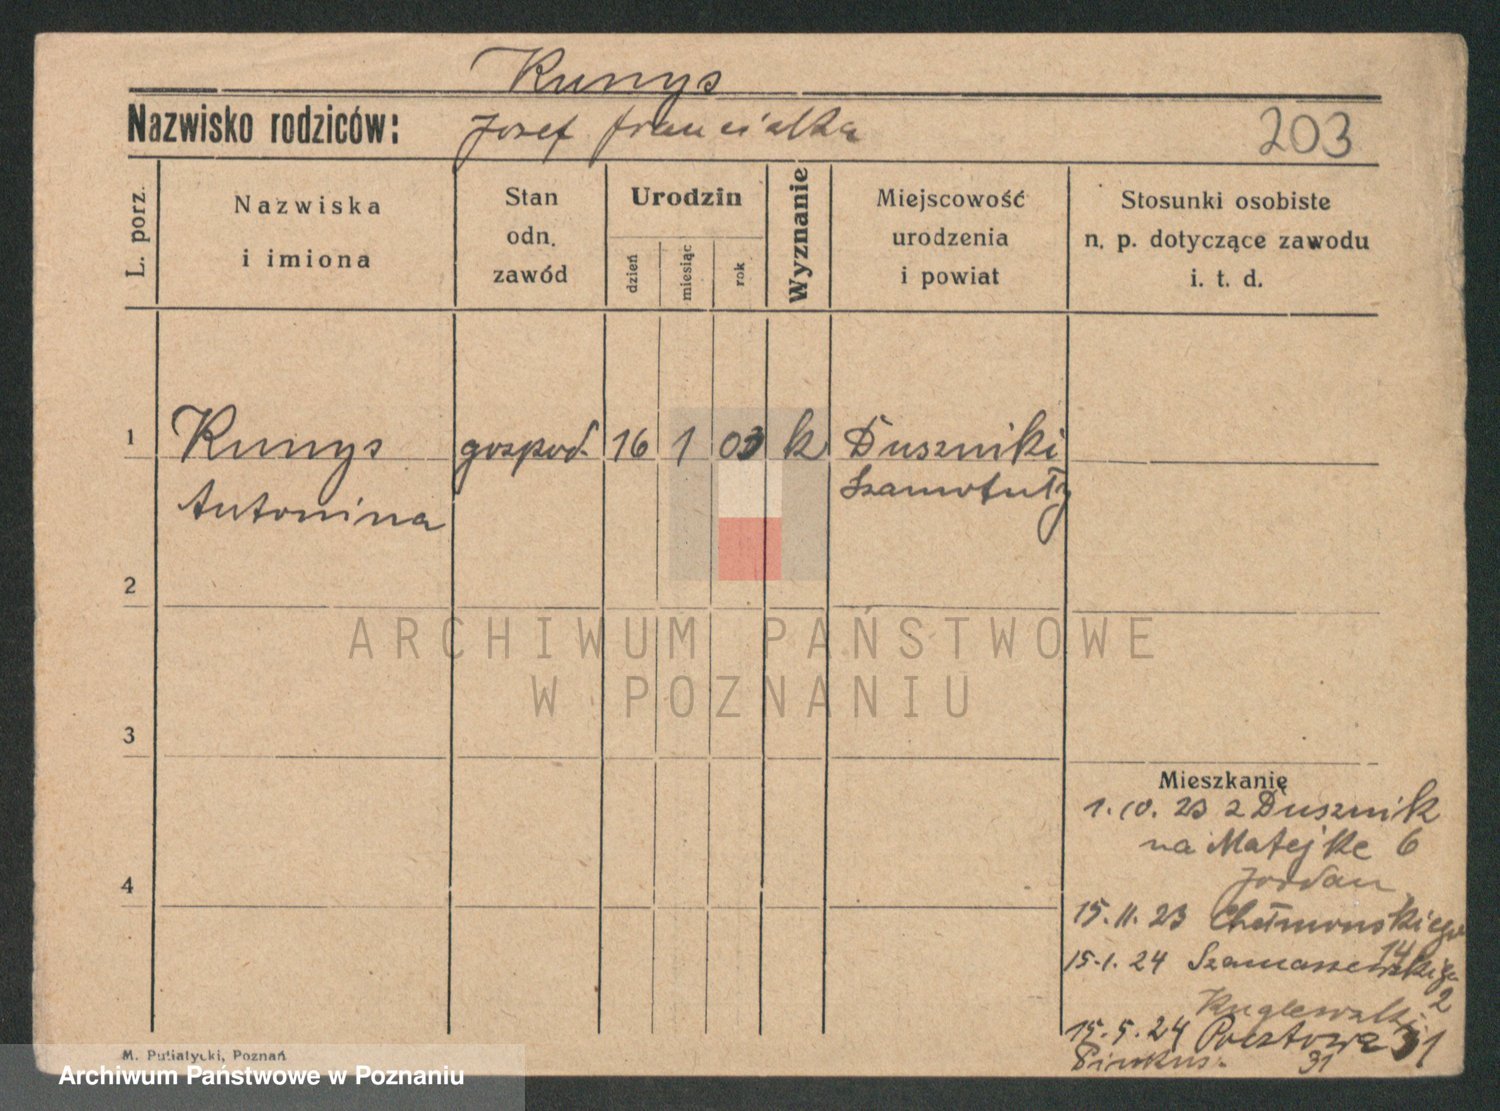 Kunys
Nazwisko rodziców: Josef Franciszka
203
L. porz.
Nazwiska
i imiona
Stan
odn.
zawód
Urodzin
dzień
miesiąc
rok
Wyznanie
Miejscowość
urodzenia
i powiat
Stosunki osobiste
n. p. dotyczące zawodu
i. t. d.
1 Kunys gospod. 16 1 03 k Duszniki
Antonina Szamotuły
2
ARCHIWUM PAŃSTWOWE
W POZNANIU
3
Mieszkanie
1.10.23 z Dusznik
na Matejke 6
Jordan
4
15.11.23 Chełmonskiego
14
15.1.24 Szamarzewskiego
2
15.5.24 Pocztowa 31
31
M. Putiatycki, Poznań
Archiwum Państwowe w Poznaniu